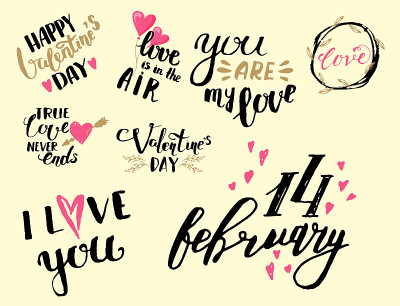 HAPPY
Valentine's
DAY
love
is in the
AIR
you
ARE
my love
love
TRUE
Love
NEVER
ends
Valentine's
DAY
I LOVE
you
14
february